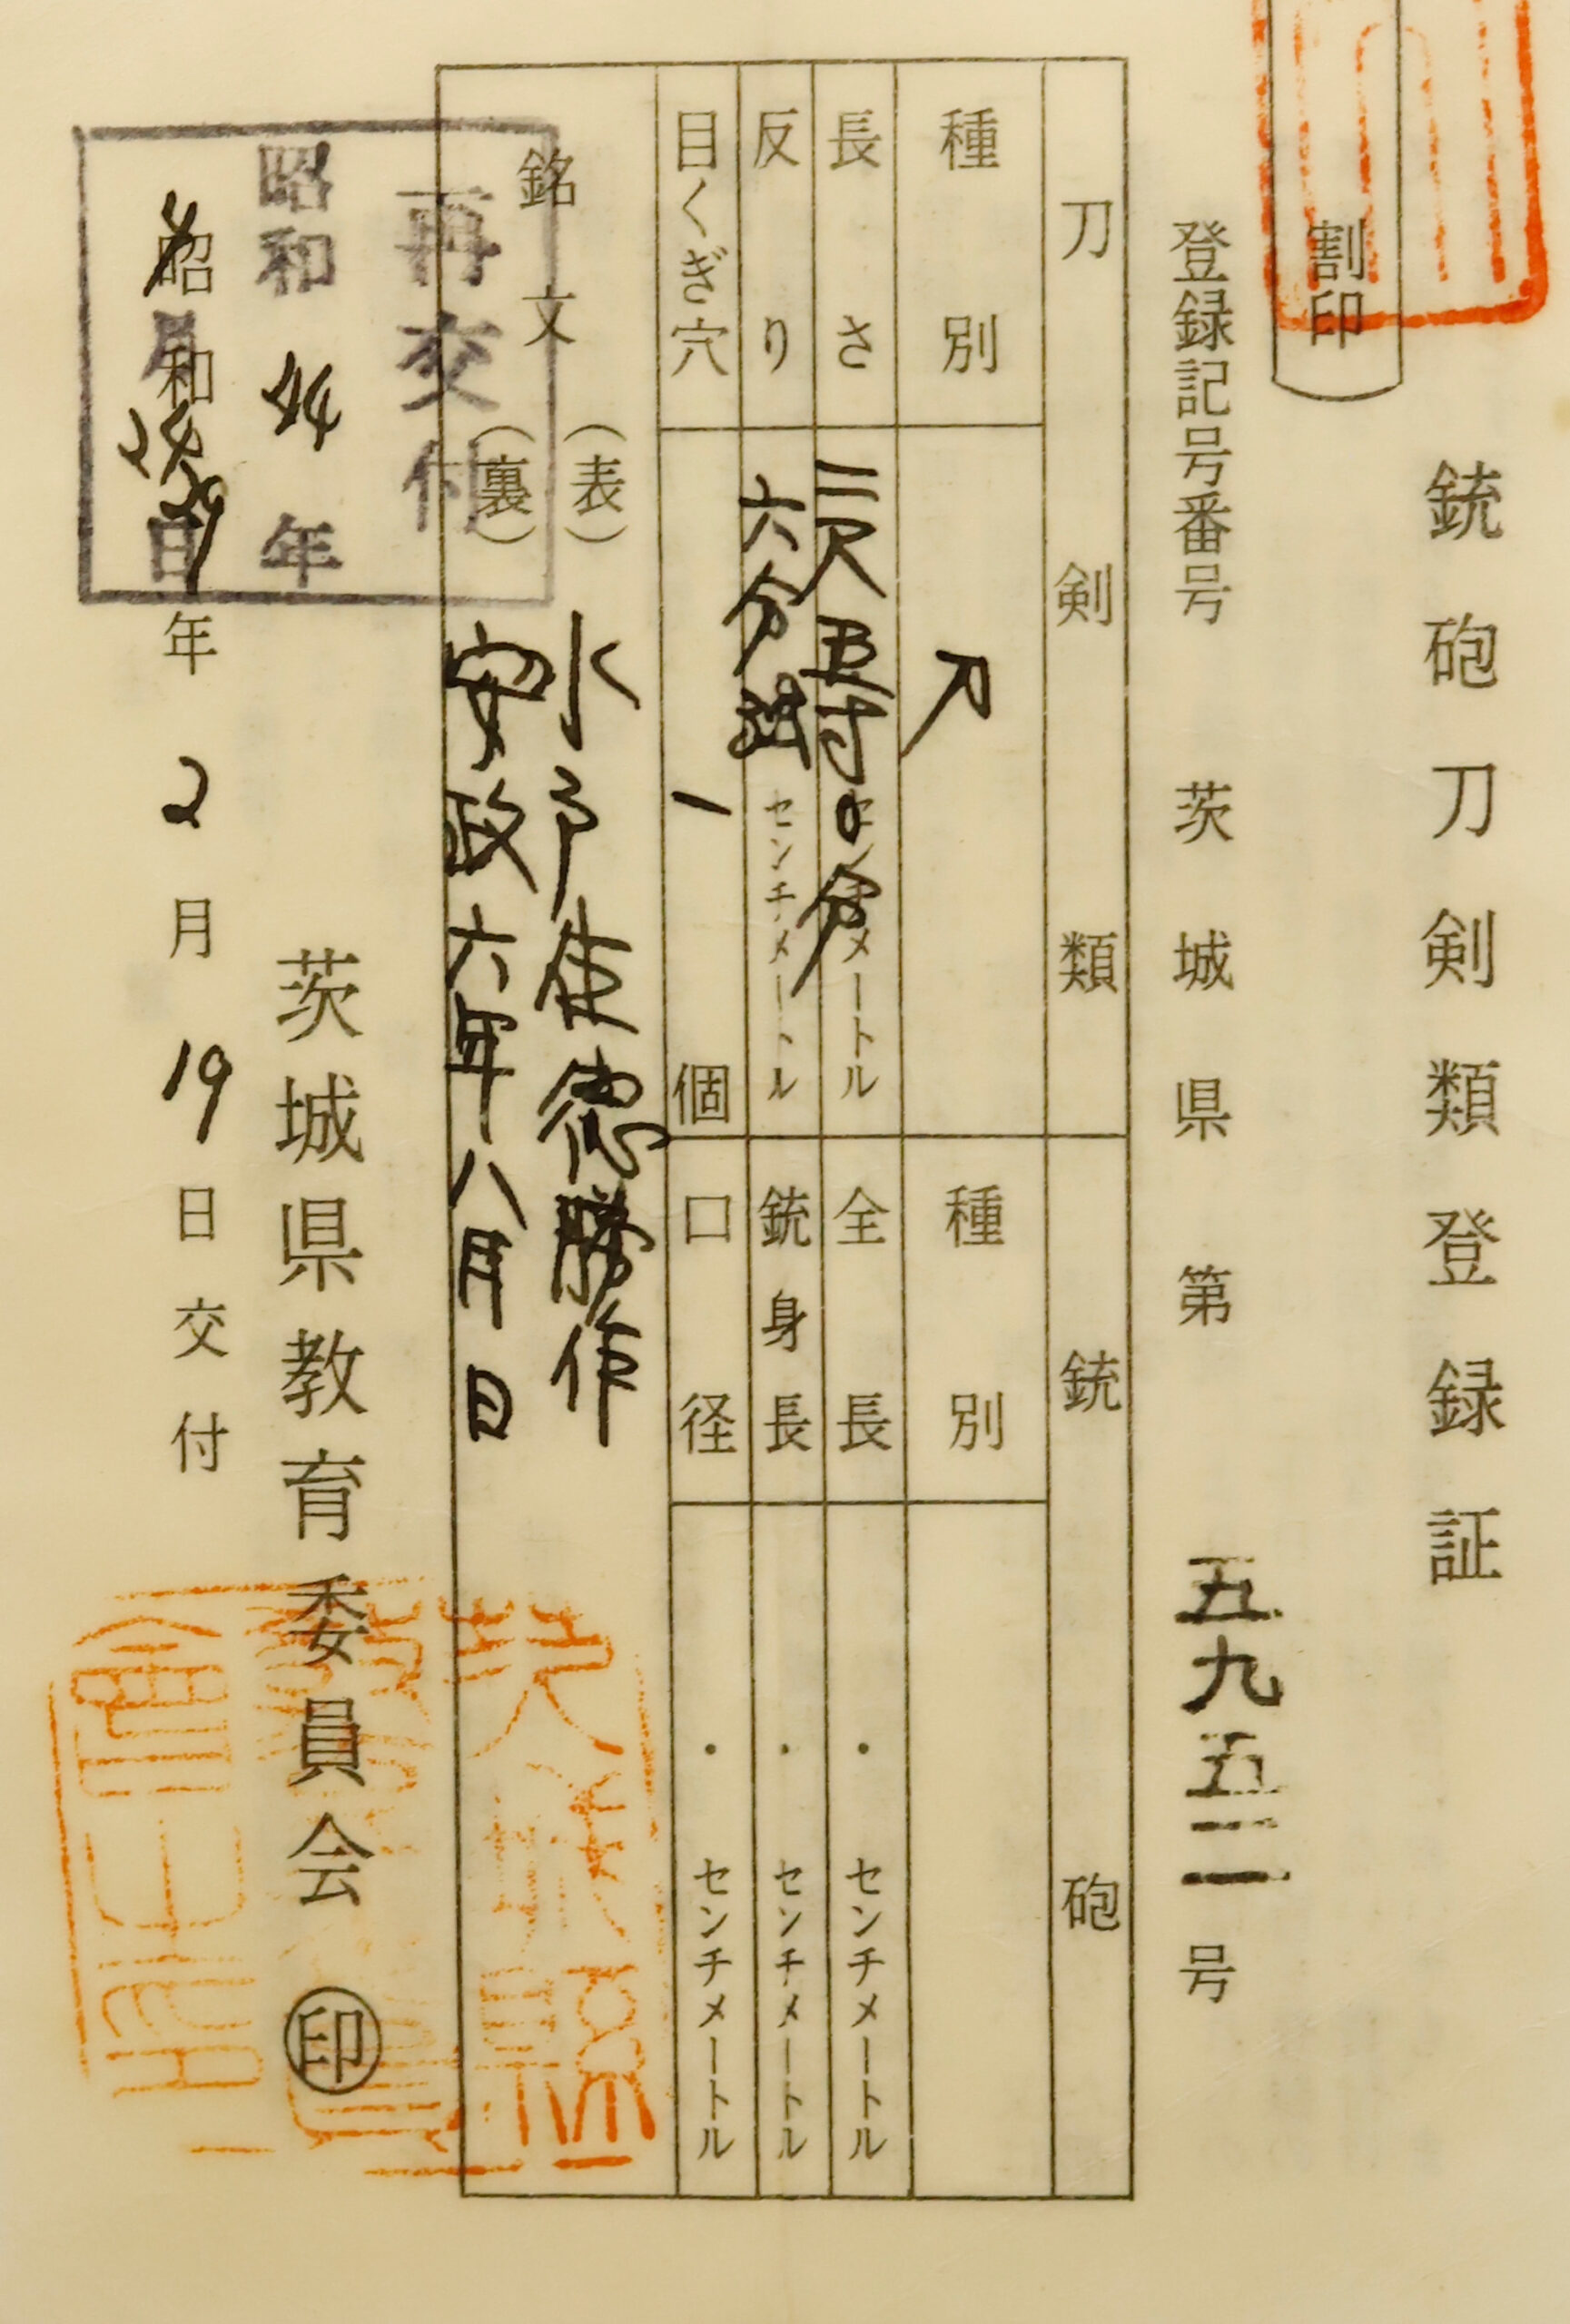 銃砲刀剣類登録証
割印
登録記号番号 茨城県 第 五九五二 号
刀剣類
種別 刀
長さ 二尺五寸〇分 センチメートル
反り 六分 センチメートル
目くぎ穴 一 個
銃砲
種別
全長 ・ センチメートル
銃身長 ・ センチメートル
口径 ・ センチメートル
銘文
(表) 水戸住德勝作
(裏) 安政六年八月日
再交付
昭和 44 年
月 日
茨城県教育委員会 印
昭和 年 2 月 19 日交付